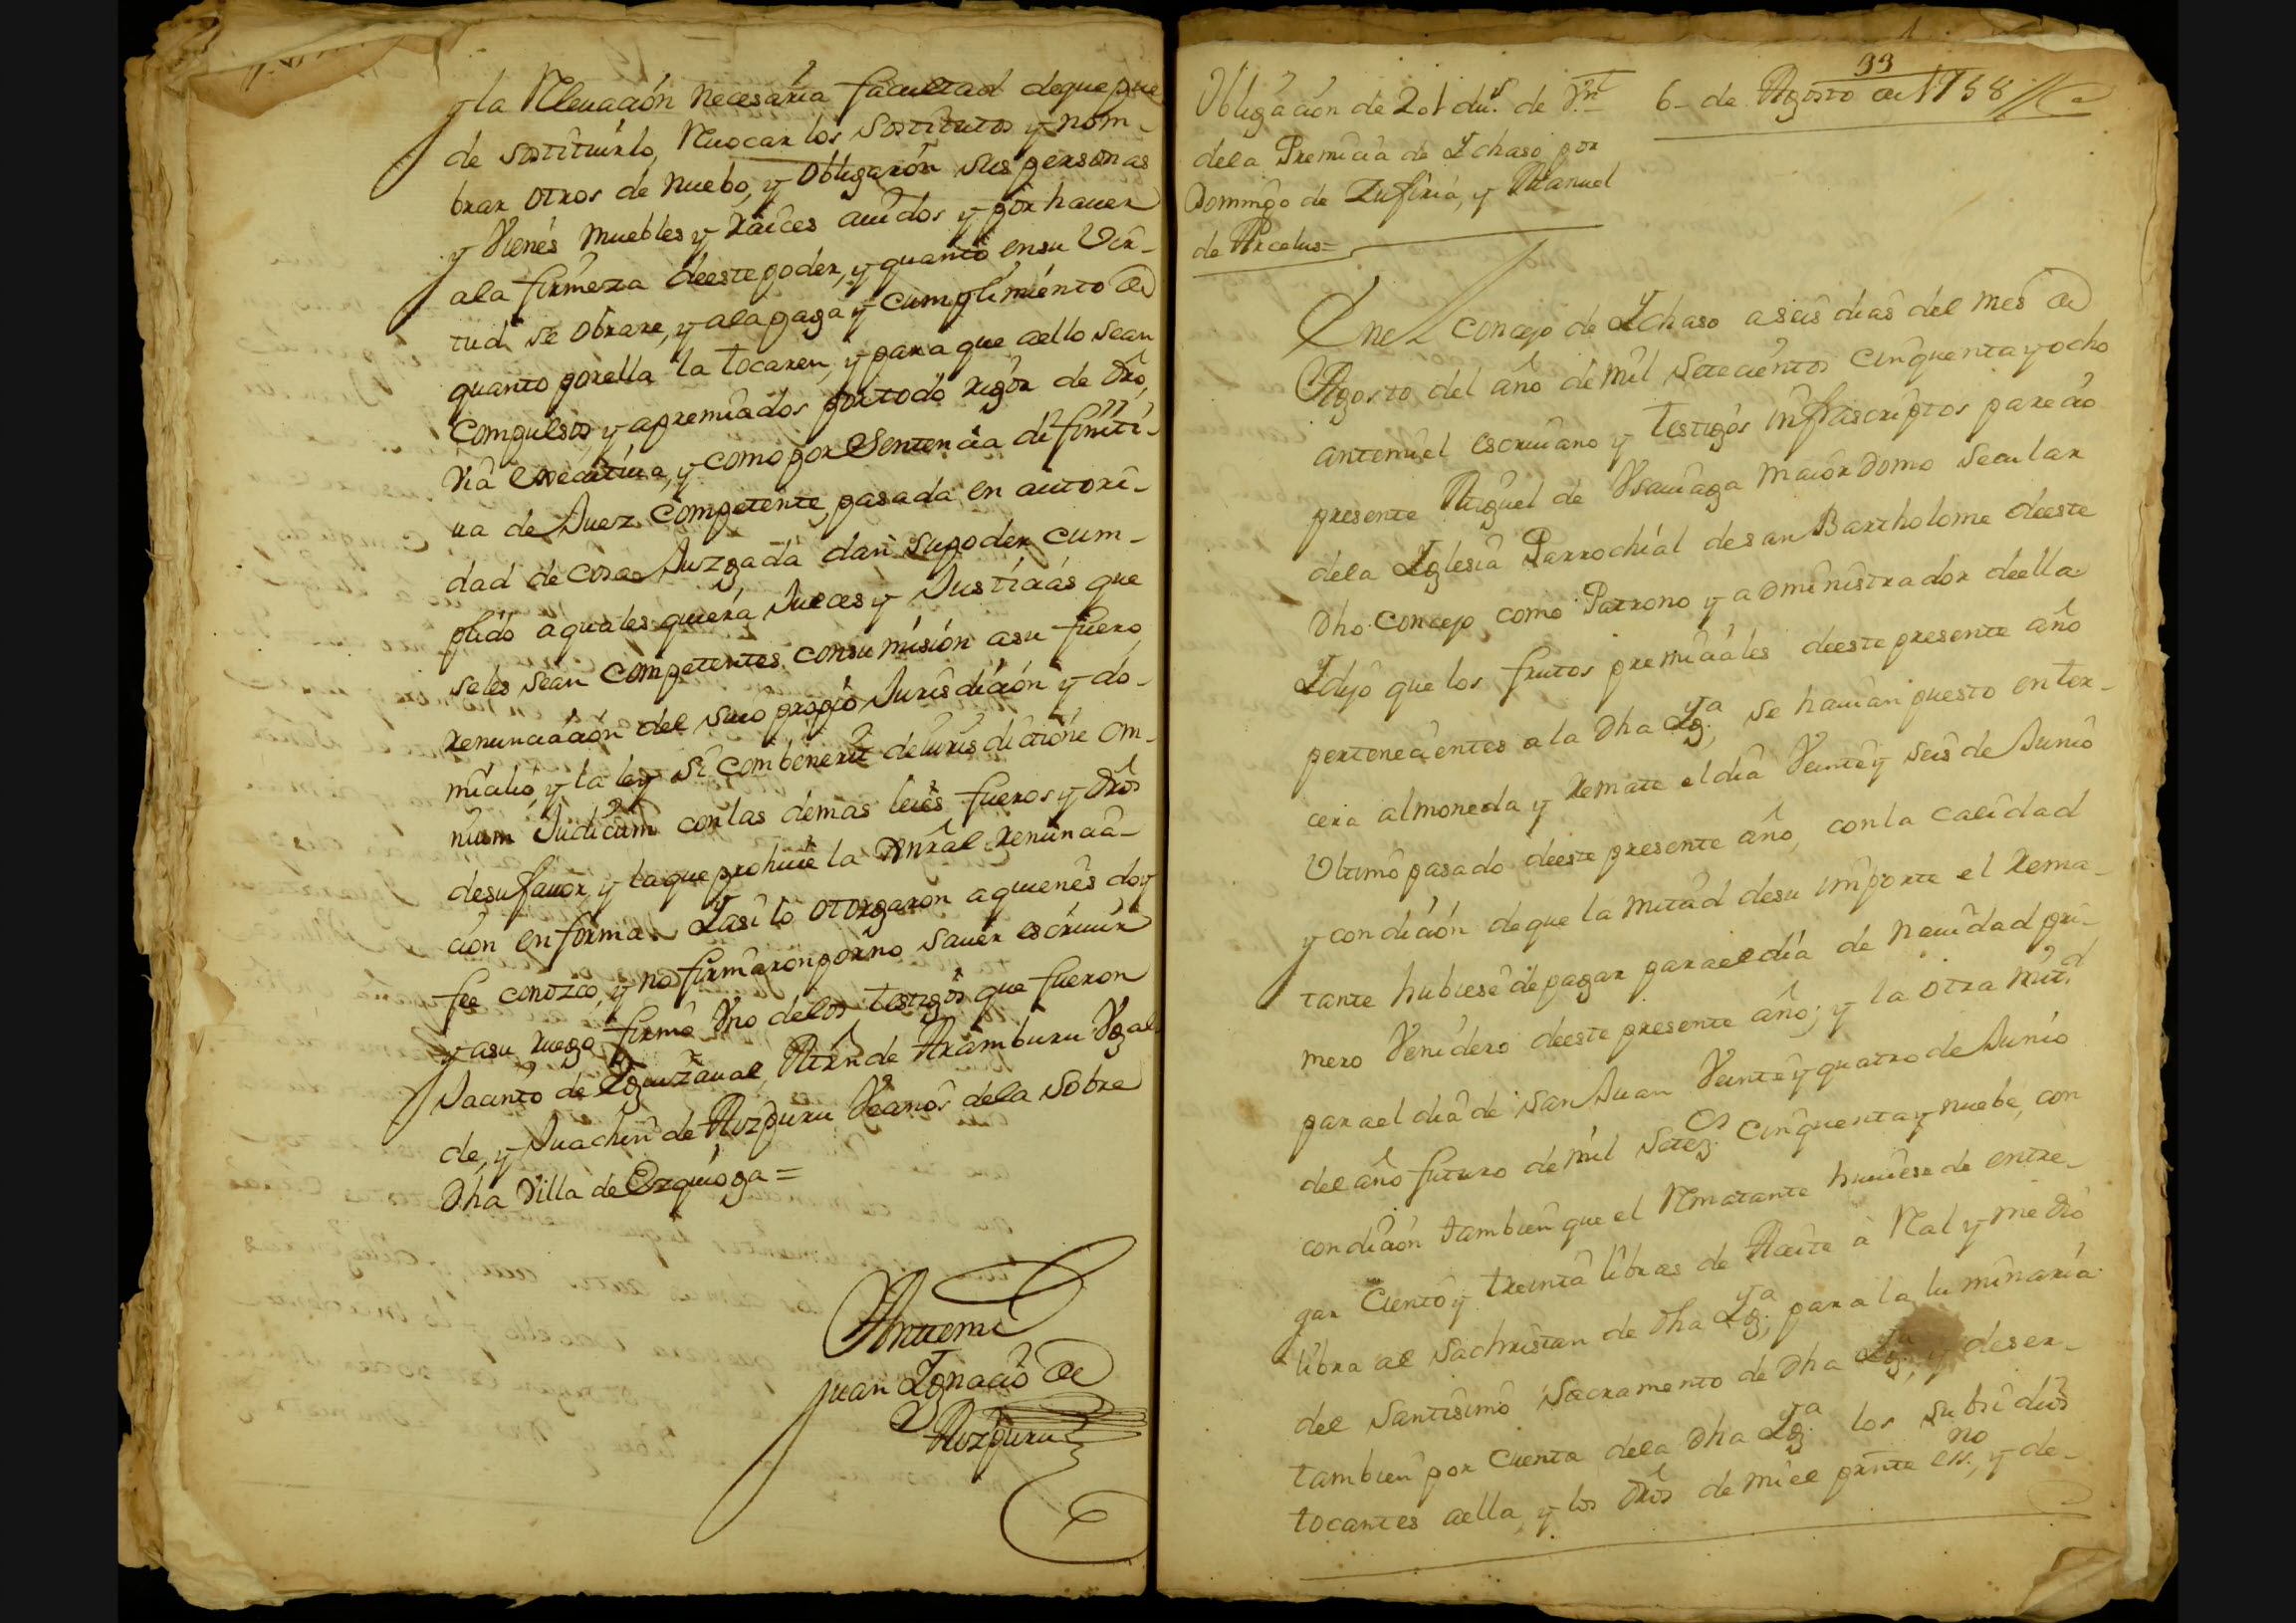 y la Relevación necesaria facultad de que pue
de sostituirlo, Revocar los sostitutos y nom-
brar otros de nuebo, y obligarón sus personas
y Vienés muebles y raices auidos y por hauer
ala firmeza deeste poder, y quanto ensu Vir-
tud se obrare, y ala paga y cumplimiento de
quanto porella la tocaren, y para que aello sean
compulsos y apremiados por todo rigor de dro,
via executiua, y como por Sentencia difiniti-
ua de Juez competente, pasada en autori-
dad de cosa Juzgada dan su poder cum-
plido a quales quiera Jueces y Justicias que
seles sean competentes consumisión asu fuero,
renunciación del suio propio Jurisdición y do-
micilio, y la ley si combenerit de iurisdictione om-
nium Judicum con las demas leies fueros y dros
desu fauor, y la que prohiue la Gnral renuncia-
ción en forma. Yasi lo otorgaron a quienes doy
fee conozco, y no firmaron por no sauer escriuir
y asu ruego firmó Vno delos testigos que fueron
Jacinto de Eguzaual, Mrn de Aramburu Vgal
de, y Juachin de Aozpuru Vecinos dela sobre
dha Villa de Ezquioga =
Antemi
Juan Ignacio de
Aozpuru
33
Obligación de 201 dus. de Vn
dela Premicia de Ichaso por
Domingo de Zufiria, y Manuel
de Arcelus=
6- de Agosto de 1758//
Enel concejo de Ichaso a seis dias del mes de
Agosto del año de mil setecientos cinquenta y ocho
antemi el escriuano y testigos infrascriptos pareció
presente Miguel de Vsauiaga maiordomo secular
dela Iglesia Parrochial de san Bartholome deeste
dho Concejo como Patrono y administrador deella
Y dijo que los frutos premiciales deeste presente año
pertenecientes a la dha Yga, se hauian puesto en ter-
cera almoneda y remate el dia Veinte y seis de Junio
Vltimo pasado deeste presente año, con la calidad
y condición de que la mitad desu importe el rema-
tante hubiese de pagar para el dia de nauidad pri-
mero Venidero deeste presente año; y la otra mitd
para el dia de san Juan Veinte y quatro de Junio
del año futuro de mil Setezos cinquenta y nuebe, con
condición tambien que el Rematante huuiese de entre-
gar Ciento y treinta libras de Aceite à Real y medio
libra al Sachristan de dha Yga, para la luminaria
del Santisimo Sacramento de dha Yga, y de ser-
tambien por cuenta dela dha Yga los subsidios
tocantes aella, y los dros de mi el prnte essno, y de-